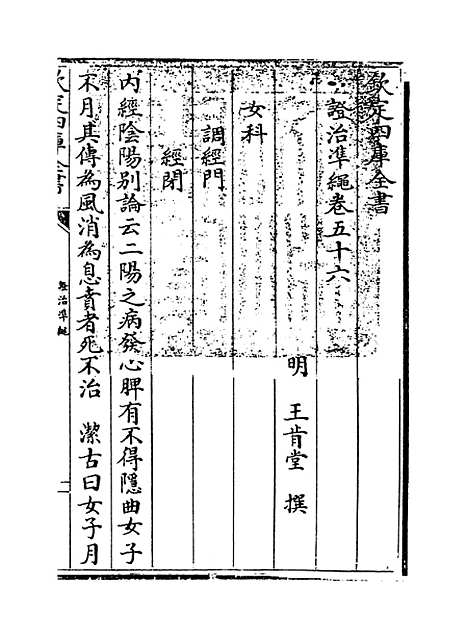 欽定四庫全書
證治準繩卷五十六
明 王肯堂 撰
女科
調經門
經閉
内經陰陽别論云二陽之病發心脾有不得隱曲女子
不月其傳為風消為息賁者死不治 潔古曰女子月
欽定四庫全書
證治準繩
二